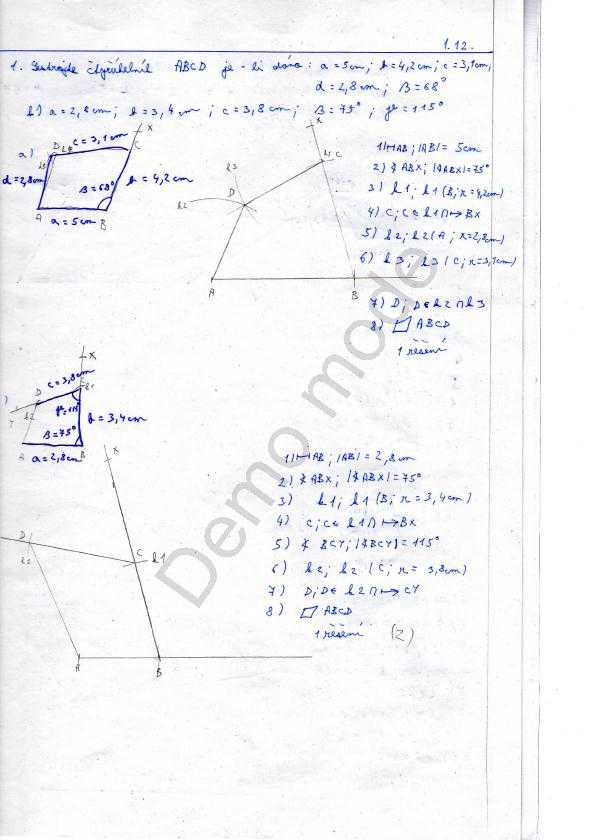 1.12.
1. Sestrojte čtyřúhelník ABCD je-li dáno: a = 5cm; b = 4,2cm; c = 3,1cm,
d = 2,8cm; β = 68°
b) a = 2,8cm; b = 3,4cm; c = 3,8cm; β = 75°; γ = 115°
a)
D
c = 3,1cm
X
C
d = 2,8cm
β = 68°
b = 4,2cm
A
a = 5cm
B
X
k1 C
k3
D
k2
A
B
1) ⊢⊣AB; |AB| = 5cm
2) ∢ABX; |∢ABX| = 75°
3) k1; k1 (B; r = 4,2cm)
4) C; C ∈ k1 ∩ ↦BX
5) k2; k2 (A; r = 2,8cm)
6) k3; k3 (C; r = 3,1cm)
7) D; D ∈ k2 ∩ k3
8) ▱ ABCD
1 řešení
X
c = 3,8cm
k1
D
Y
k2
γ = 115°
β = 75°
b = 3,4cm
A
a = 2,8cm
B
X
D
k2
C
k1
A
B
1) ⊢⊣AB; |AB| = 2,8cm
2) ∢ABX; |∢ABX| = 75°
3) k1; k1 (B; r = 3,4cm)
4) C; C ∈ k1 ∩ ↦BX
5) ∢ BCY; |∢BCY| = 115°
6) k2; k2 (C; r = 3,8cm)
7) D; D ∈ k2 ∩ ↦CY
8) ▱ ABCD
1 řešení (2)
Demo mode